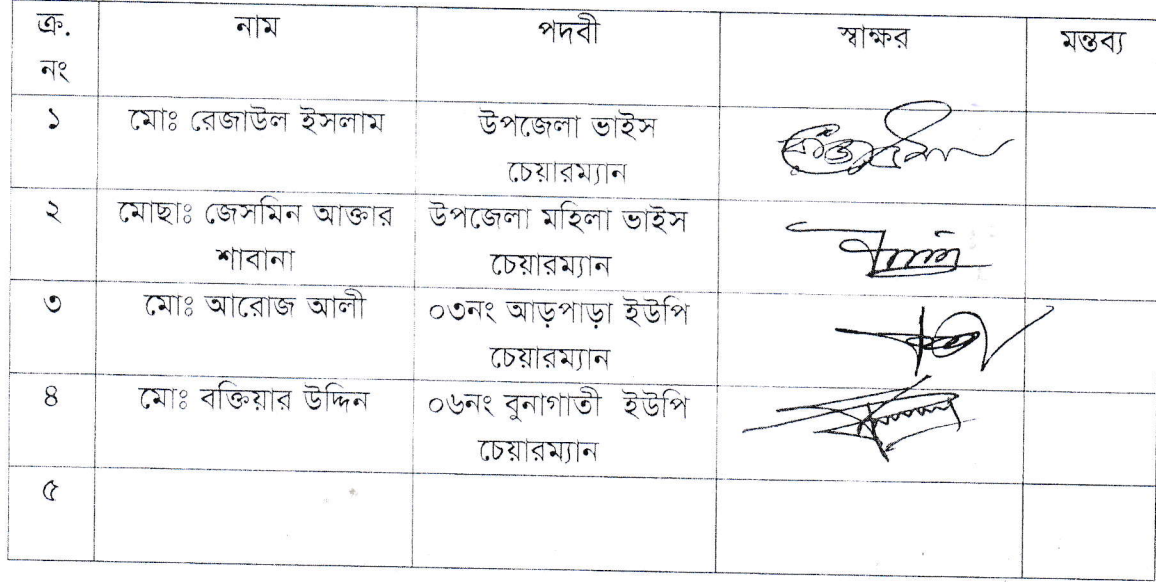 ক্র. নাম পদবী স্বাক্ষর মন্তব্য
নং
১ মোঃ রেজাউল ইসলাম উপজেলা ভাইস
চেয়ারম্যান
২ মোছাঃ জেসমিন আক্তার উপজেলা মহিলা ভাইস
শাবানা চেয়ারম্যান
৩ মোঃ আরোজ আলী ০৩নং আড়পাড়া ইউপি
চেয়ারম্যান
৪ মোঃ বক্তিয়ার উদ্দিন ০৬নং বুনাগাতী ইউপি
চেয়ারম্যান
৫